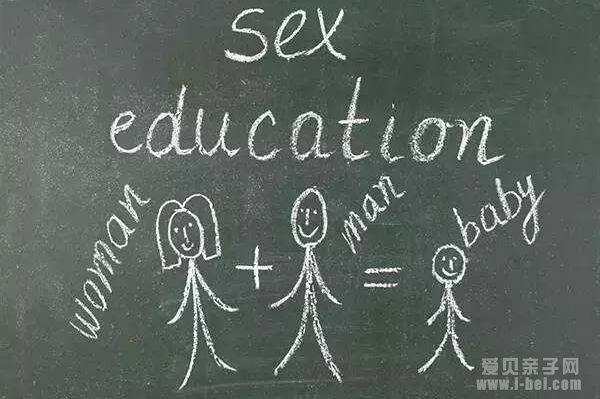 sex
education
woman
+
man
=
baby
爱贝亲子网
www.i-bei.com